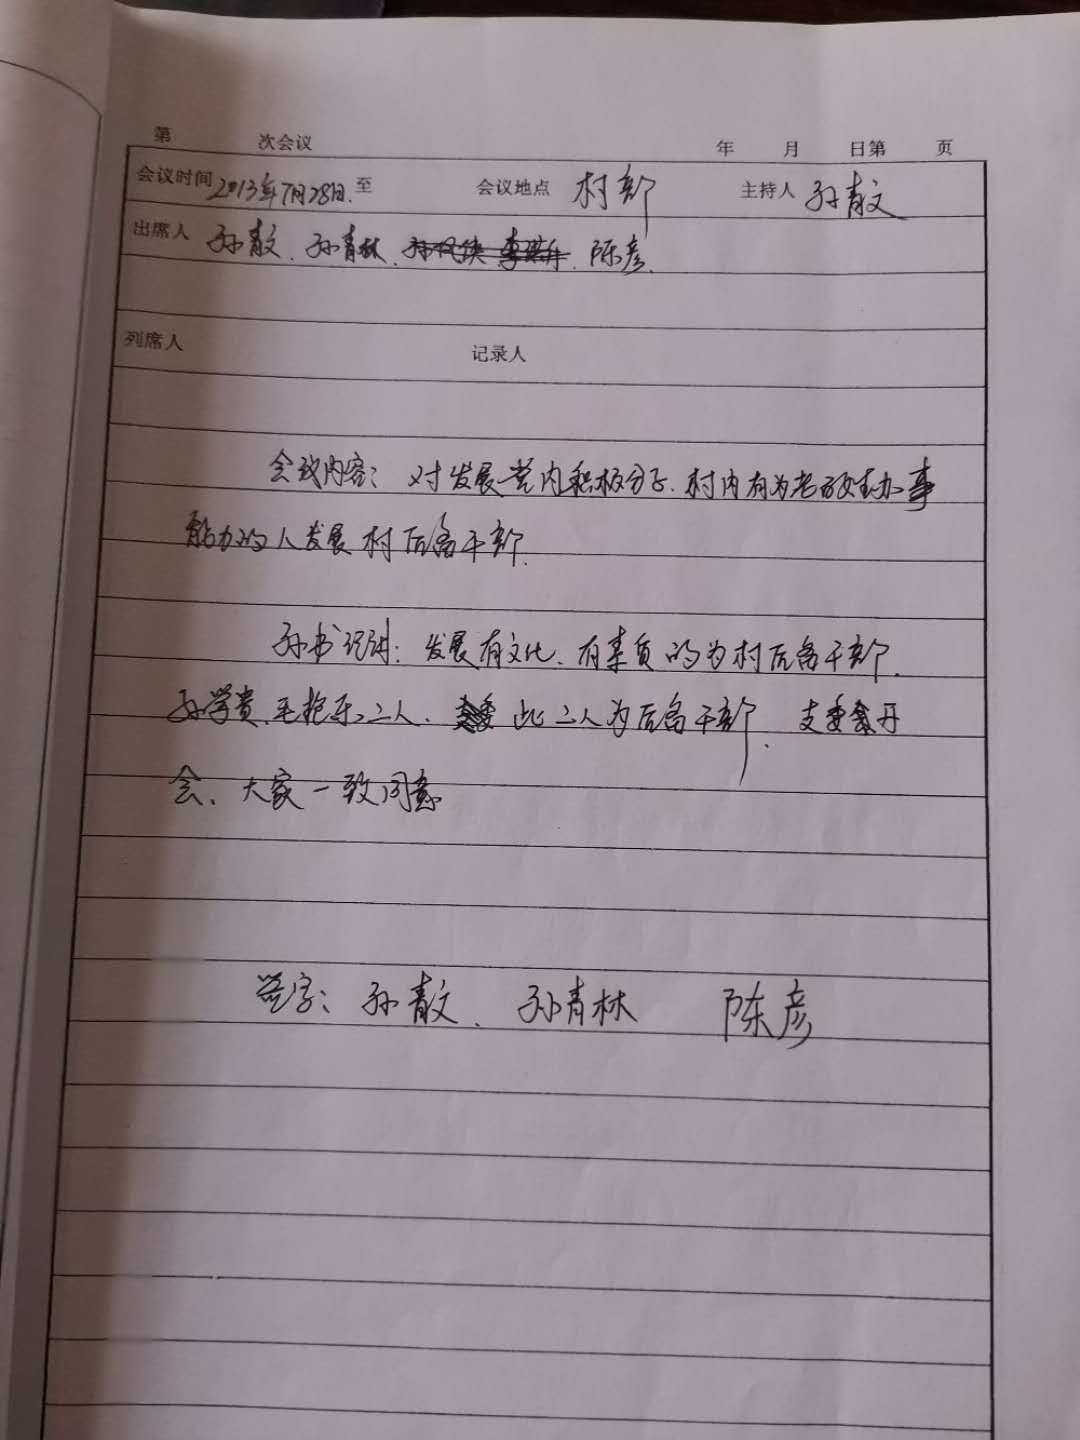 第 次会议 年 月 日第 页
会议时间 2013年7月28日. 至 会议地点 村部 主持人 孙青文
出席人 孙青文、孙青林、陈彦.
列席人 记录人
会议内容：对发展党内积极分子.村内有为老百姓办事
能力的人发展村后备干部.
孙书记讲：发展有文化、有素质的为村后备干部.
孙学贵、毛 二人. 此二人为后备干部、支委会开
会、大家一致同意
签字：孙青文、孙青林 陈彦